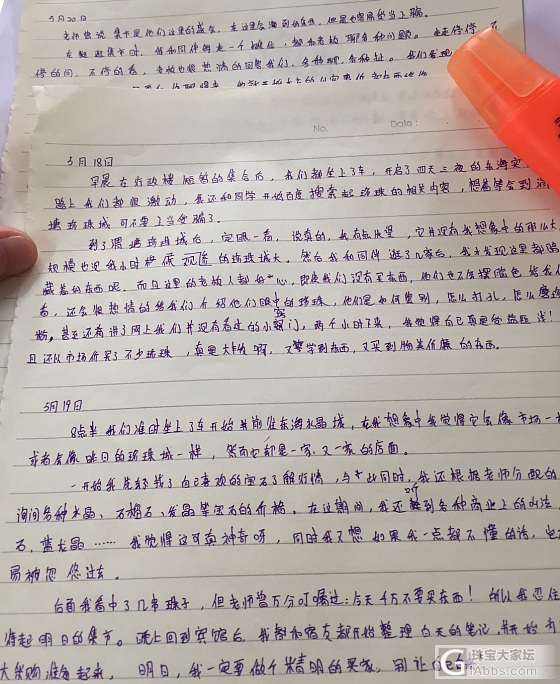 5月20日
老师常说集市是他们这里的盛会,在这里会淘到好东西,但是也容易会上当
在逛逛集市时,我和同伴每走一个摊位,都和老板聊各种问题。走走停停,不
停的问,不停的看,老板也很热情的回复我们,各种聊,各种扯。我们发现
No.
Date:
5月18日
早晨在行政楼短暂的集合后,我们都坐上了车,开启了四天三夜的东海实
路上我们都很激动,我还和同学开始百度搜索起珍珠的相关内容,想着等会到渭
塘珍珠城可不要上当受骗了。
到了渭塘珍珠城后,定眼一看,说真的,我有点失望,它并没有我想象中的那么大,
规模也没我小时候 的珍珠城大。然后我和同伴逛了几家后,我才发现这里都暗
藏着好东西呢,而且这里的老板人都好,即使我们没有买东西,他们也不会摆脸色给我们
看,还会很热情的给我们介绍他们眼中的珍珠,他们是如何鉴别,怎么打孔,怎么磨
粉,甚至还有讲了网上我们并没有看过的小窍门,两个小时下来,我觉得自己真是受益匪浅!
且还以市场价买了不少珍珠,真是大丰收啊,又学到东西,又买到物美价廉的东西。
5月19日
8点半我们准时坐上了车开始前往东海水晶城,在我想象中我觉得它会像市场一
或者会像昨日的珍珠城一样,然而它却是一家又一家的店面。
一开始我先去找了自己喜欢的宝石了解行情,与此同时,我还根据老师分配的
询问各种水晶、石榴石、发晶等宝石的价格。在这期间,我还听到各种商业上的叫法,
石、蓝龙晶……我觉得这可真神奇呀,同时我又想如果我一点都不懂的话,
易被忽悠过去。
后面我看中了几串珠子,但老师曾万分叮嘱过:今天千万不要买东西!所以我忍住
等起明日的集市。晚上回到宾馆后,我都和宿友都开始整理白天的笔记,并开始为
大采购准备起来,明日,我一定要做个精明的买家,别让
珠宝大家坛
FaBBS.com